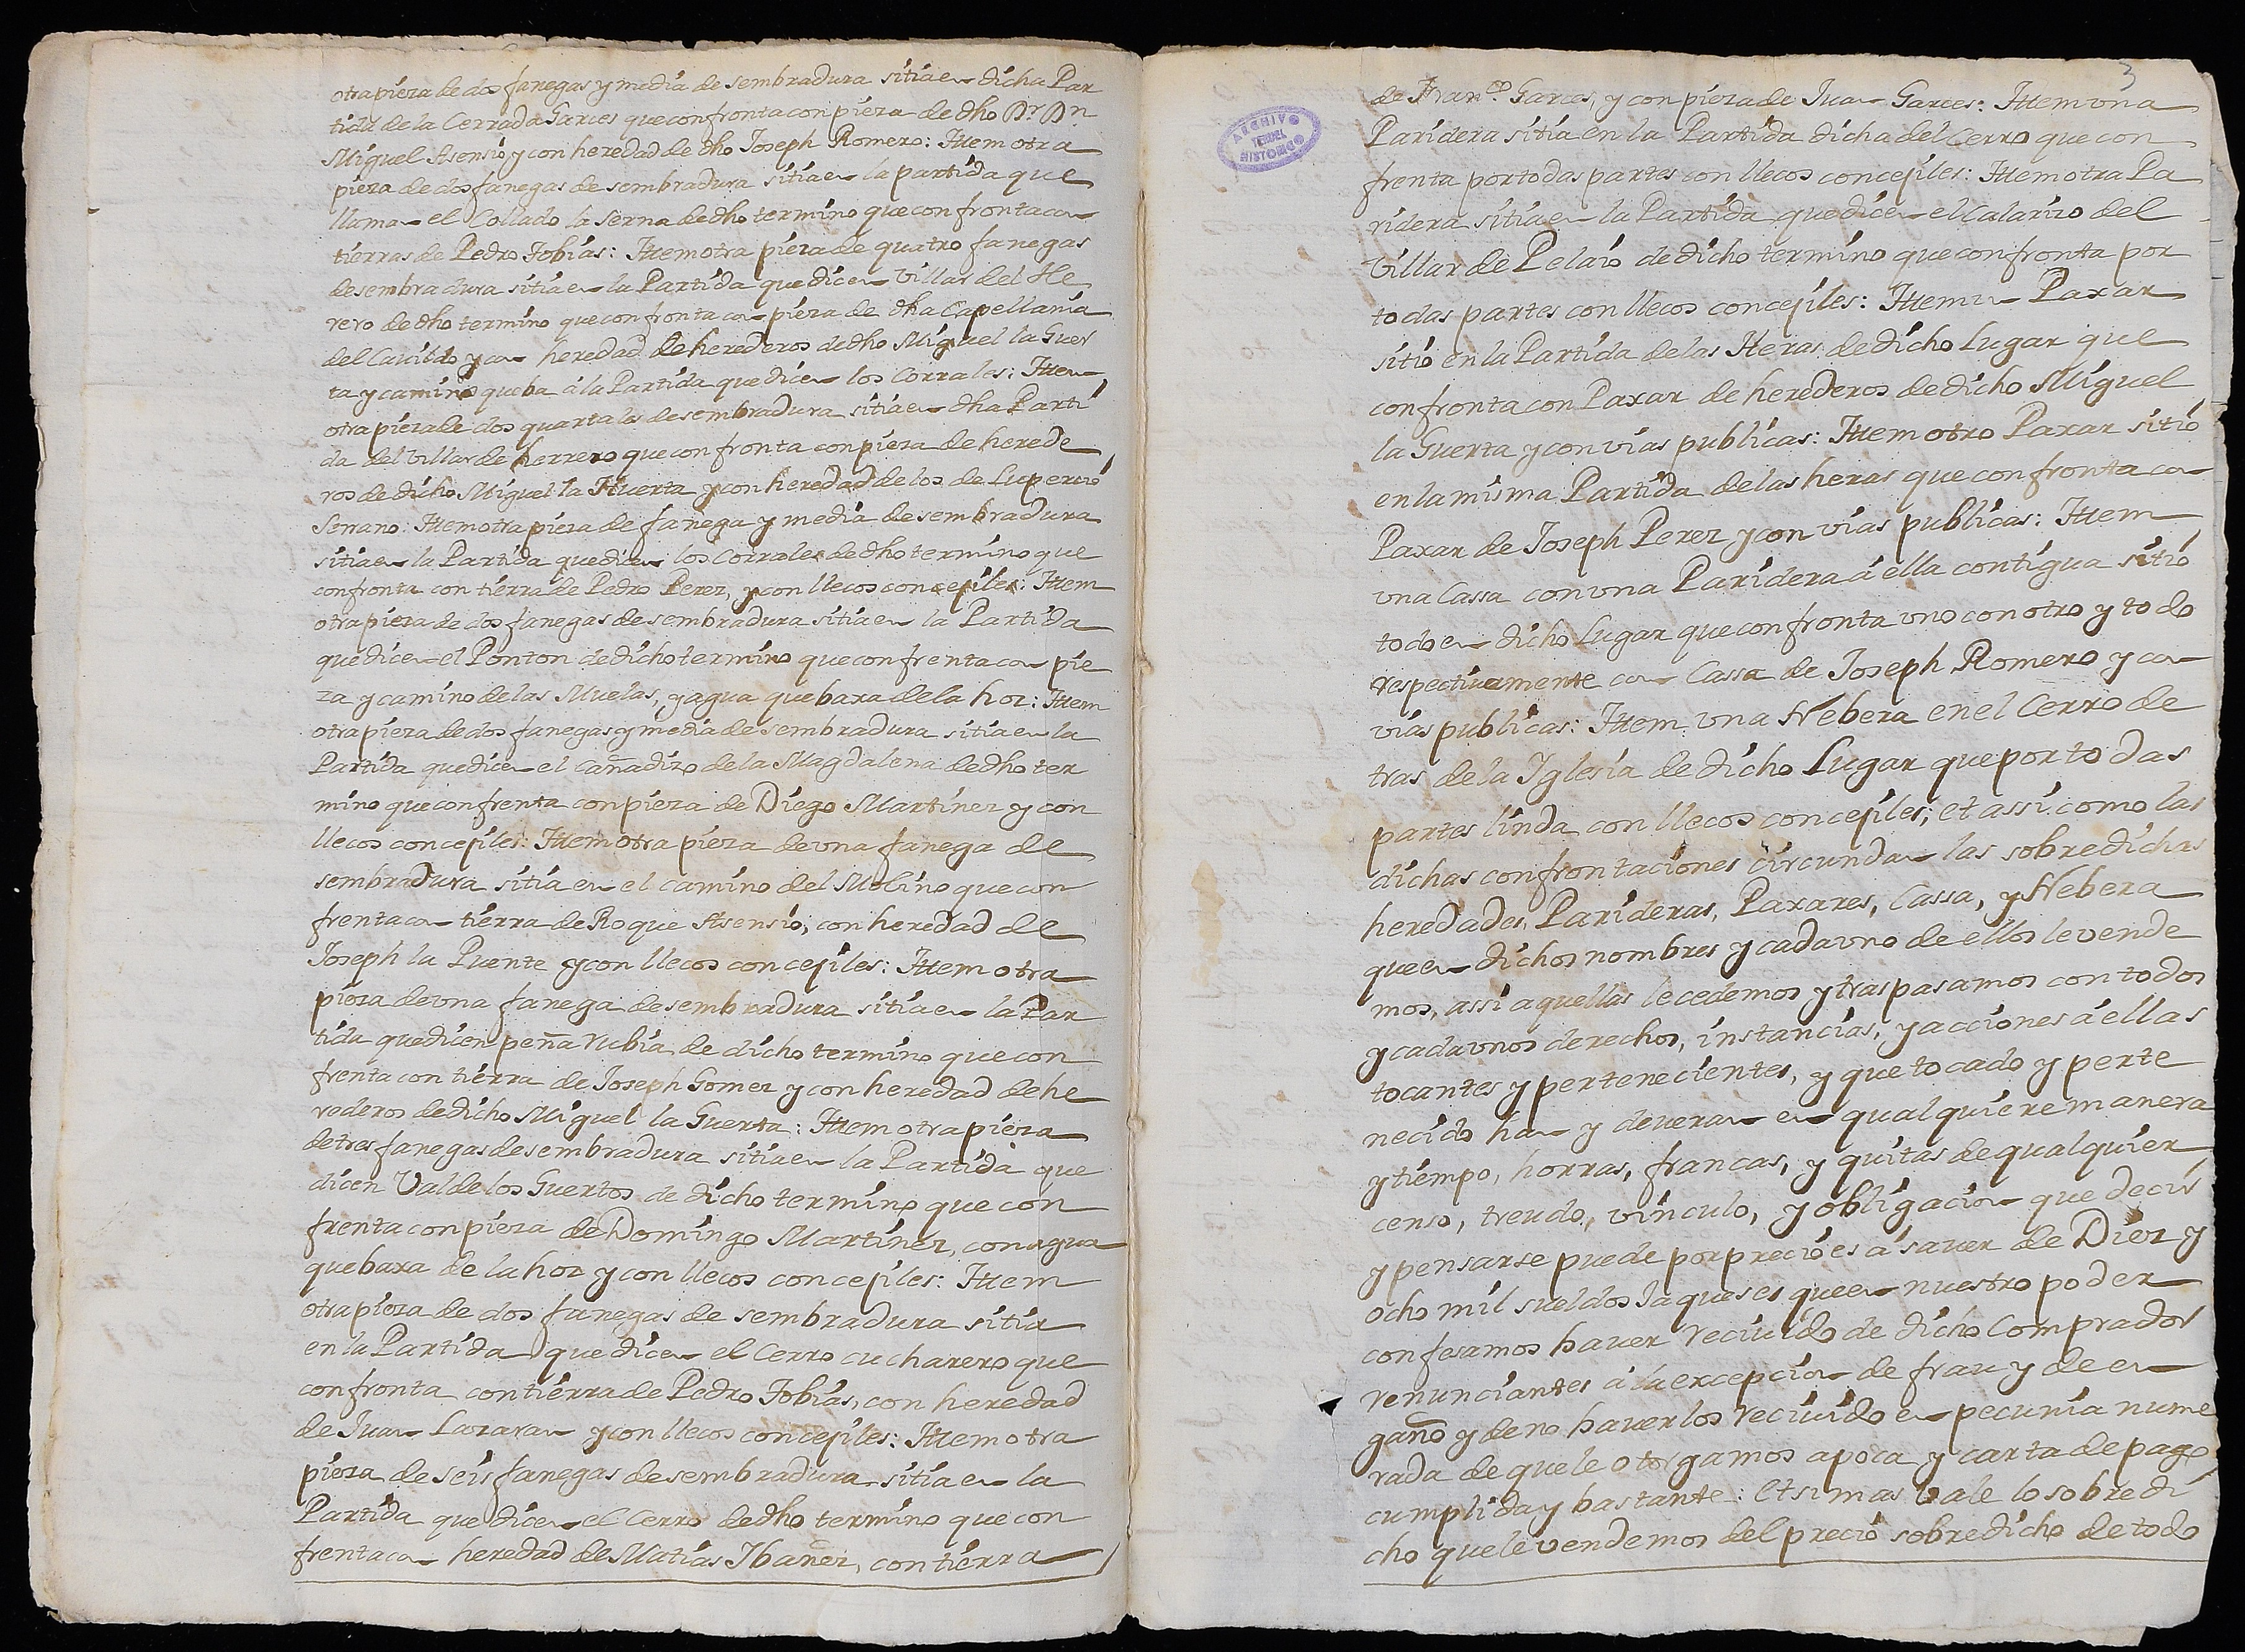 otra pieza de dos fanegas y media de sembradura sitia en dicha Par
tida de la Cerrada Garces que confronta con pieza de dho Dr. Dn.
Miguel Asensio y con heredad de dho Joseph Romero: Ittem otra
pieza de dos fanegas de sembradura sitia en la partida que
llaman el Collado la Serna de dho termino que confronta con
tierras de Pedro Tobias: Ittem otra pieza de quatro fanegas
de sembradura sitia en la Partida que dicen Villar del He
rero de dho termino que confronta con pieza de dha Capellania
del Cavildo y con heredad de herederos de dho Miguel la Guer
ta y camino que ba á la Partida que dicen los Corrales: Ittem
otra pieza de dos quartales de sembradura sitia en dha Parti
da del Villar de herrero que confronta con pieza de herede
ros de dicho Miguel la Huerta y con heredad de los de Lupercio
Serrano: Ittem otra pieza de fanega y media de sembradura
sitia en la Partida que dicen los Corrales de dho termino que
confronta con tierra de Pedro Perez, y con llecos concejiles: Ittem
otra pieza de dos fanegas de sembradura sitia en la Partida
que dicen el Ponton de dicho termino que confrenta con pie
za y camino de las Muelas, y agua que baxa de la hoz: Ittem
otra pieza de dos fanegas y media de sembradura sitia en la
Partida que dicen el Cañadizo de la Magdalena de dho ter
mino que confrenta con pieza de Diego Martinez y con
llecos concejiles: Ittem otra pieza de una fanega de
sembradura sitia en el camino del Molino que con
frenta con tierra de Roque Asensio, con heredad de
Joseph la Puente y con llecos concejiles: Ittem otra
pieza de una fanega de sembradura sitia en la Par
tida que dicen peña rubia de dicho termino que con
frenta con tierra de Joseph Gomez y con heredad de he
rederos de dicho Miguel la Guerta: Ittem otra pieza
de tres fanegas de sembradura sitia en la Partida que
dicen Val de los Guertos de dicho termino que con
frenta con pieza de Domingo Martinez, con agua
que baxa de la hoz y con llecos concejiles: Ittem
otra pieza de dos fanegas de sembradura sitia
en la Partida que dicen el Cerro cucharero que
confronta con tierra de Pedro Tobias, con heredad
de Juan Lazaran y con llecos concejiles: Ittem otra
pieza de seis fanegas de sembradura sitia en la
Partida que dicen el Cerro de dho termino que con
frenta con heredad de Matias Ibañez, con tierra
3
ARCHIVO
TERUEL
HISTORICO
de Franco. Garces, y con pieza de Juan Garces: Ittem una
Paridera sitia en la Partida dicha del Cerro que con
frenta por todas partes con llecos concejiles: Ittem otra Pa
ridera sitia en la Partida que dicen el Calarizo del
Villar de Pelaio de dicho termino que confronta por
todas partes con llecos concejiles: Ittem un Paxar
sitio en la Partida de las Heras de dicho Lugar que
confronta con Paxar de herederos de dicho Miguel
la Guerta y con vias publicas: Ittem otro Paxar sitio
en la misma Partida de las heras que confronta con
Paxar de Joseph Perez y con vias publicas: Ittem
una Cassa con una Paridera á ella contigua sitio
todo en dicho Lugar que confronta uno con otro y todo
respectivamente con Cassa de Joseph Romero y con
vias publicas: Ittem una Nebera en el Cerro de
tras de la Iglesia de dicho Lugar que por todas
partes linda con llecos concejiles; et assi como las
dichas confrontaciones circundan las sobredichas
heredades, Parideras, Paxares, Cassa, y Nebera
que en dichos nombres y cada uno de ellos le vende
mos, assi aquellas le cedemos y traspasamos con todos
y cada unos derechos, instancias, y acciones á ellas
tocantes y pertenecientes, y que tocado y perte
necido han y deveran en qualquiere manera
y tiempo, horras, francas, y quitas de qualquier
censo, treudo, vinculo, y obligacion que decir
y pensarse puede por precio es á saver de Diez y
ocho mil sueldos Jaqueses que en nuestro poder
confesamos haver recivido de dicho Comprador
renunciantes á la excepcion de frau y de en
gaño y de no haverlos recivido en pecunia nume
rada de que le otorgamos apoca y carta de pago
cumplida y bastante: Et si mas vale lo sobredi
cho que le vendemos del precio sobredicho de todo